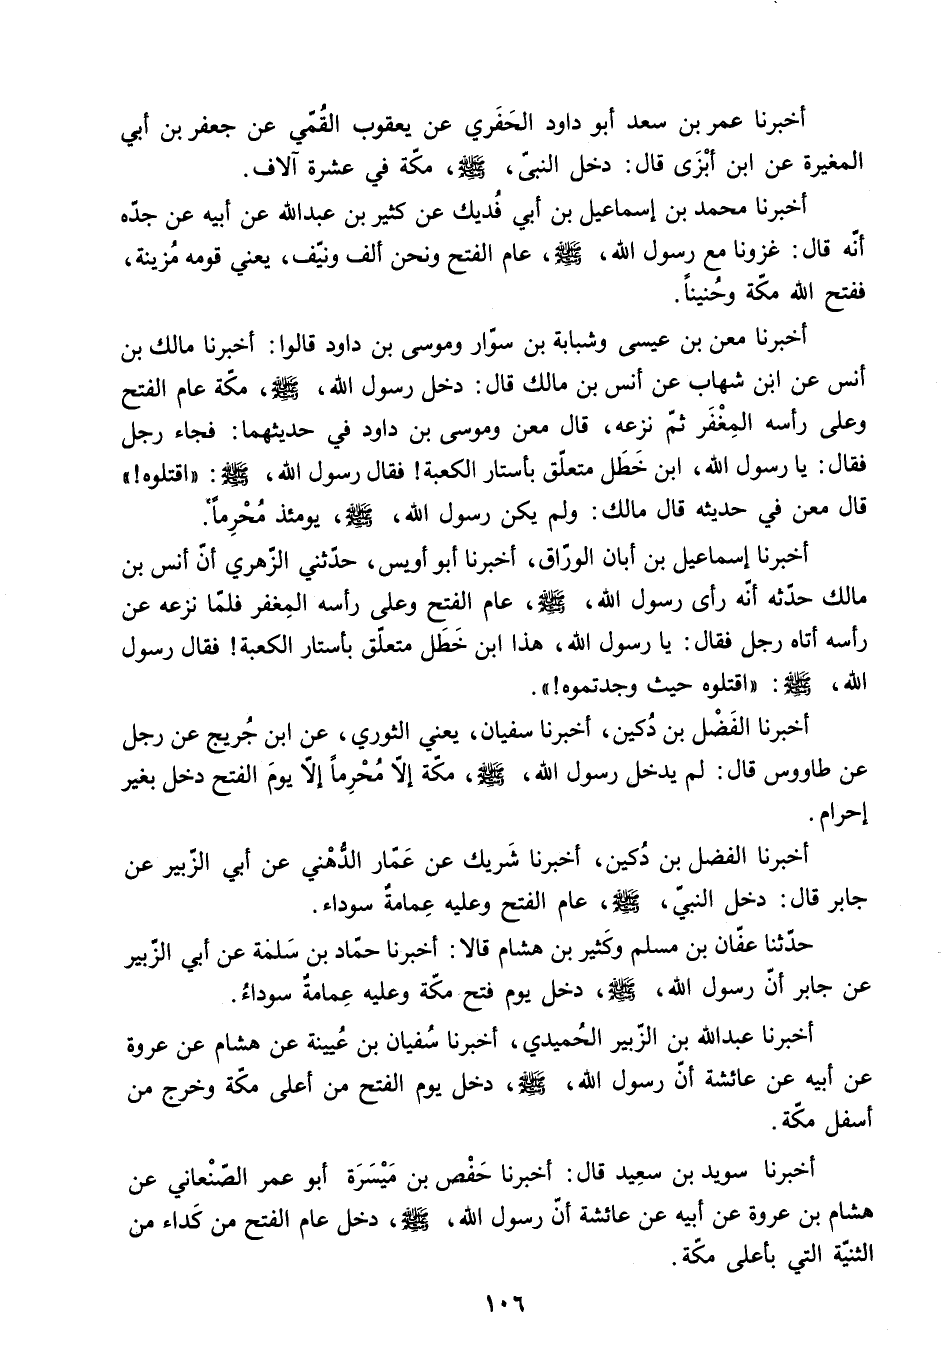 أخبرنا عمر بن سعد أبو داود الحَفَري عن يعقوب القُمّي عن جعفر بن أبي
المغيرة عن ابن أبْزَى قال: دخل النبيّ، ﷺ، مكّة في عشرة آلاف.
أخبرنا محمد بن إسماعيل بن أبي فُديك عن كثير بن عبدالله عن أبيه عن جدّه
أنّه قال: غزونا مع رسول الله، ﷺ، عام الفتح ونحن ألف ونيّف، يعني قومه مُزينة،
ففتح الله مكّة وحُنيناً.
أخبرنا معن بن عيسى وشبابة بن سوّار وموسى بن داود قالوا: أخبرنا مالك بن
أنس عن ابن شهاب عن أنس بن مالك قال: دخل رسول الله، ﷺ، مكّة عام الفتح
وعلى رأسه المِغْفَر ثمّ نزعه، قال معن وموسى بن داود في حديثهما: فجاء رجل
فقال: يا رسول الله، ابن خَطَل متعلّق بأستار الكعبة! فقال رسول الله، ﷺ: «اقتلوه!»
قال معن في حديثه قال مالك: ولم يكن رسول الله، ﷺ، يومئذ مُحْرِماً.
أخبرنا إسماعيل بن أبان الورّاق، أخبرنا أبو أويس، حدّثني الزّهري أنّ أنس بن
مالك حدّثه أنّه رأى رسول الله، ﷺ، عام الفتح وعلى رأسه المِغفر فلمّا نزعه عن
رأسه أتاه رجل فقال: يا رسول الله، هذا ابن خَطَل متعلّق بأستار الكعبة! فقال رسول
الله، ﷺ: «اقتلوه حيث وجدتموه!».
أخبرنا الفَضْل بن دُكين، أخبرنا سفيان، يعني الثوري، عن ابن جُريج عن رجل
عن طاووس قال: لم يدخل رسول الله، ﷺ، مكّة إلّا مُحْرِماً إلّا يومَ الفتح دخل بغير
إحرام.
أخبرنا الفضل بن دُكين، أخبرنا شَريك عن عَمّار الدُّهْني عن أبي الزّبير عن
جابر قال: دخل النبيّ، ﷺ، عام الفتح وعليه عِمامةٌ سوداء.
حدّثنا عفّان بن مسلم وكَثير بن هشام قالا: أخبرنا حمّاد بن سَلمَة عن أبي الزّبير
عن جابر أنّ رسول الله، ﷺ، دخل يوم فتح مكّة وعليه عِمامةٌ سوداءُ.
أخبرنا عبدالله بن الزّبير الحُميدي، أخبرنا سُفيان بن عُيينة عن هشام عن عروة
عن أبيه عن عائشة أنّ رسول الله، ﷺ، دخل يوم الفتح من أعلى مكّة وخرج من
أسفل مكّة.
أخبرنا سويد بن سعيد قال: أخبرنا حَفْص بن مَيْسَرَة أبو عمر الصّنْعاني عن
هشام بن عروة عن أبيه عن عائشة أنّ رسول الله، ﷺ، دخل عام الفتح من كَداء من
الثنيّة التي بأعلى مكّة.
١٠٦